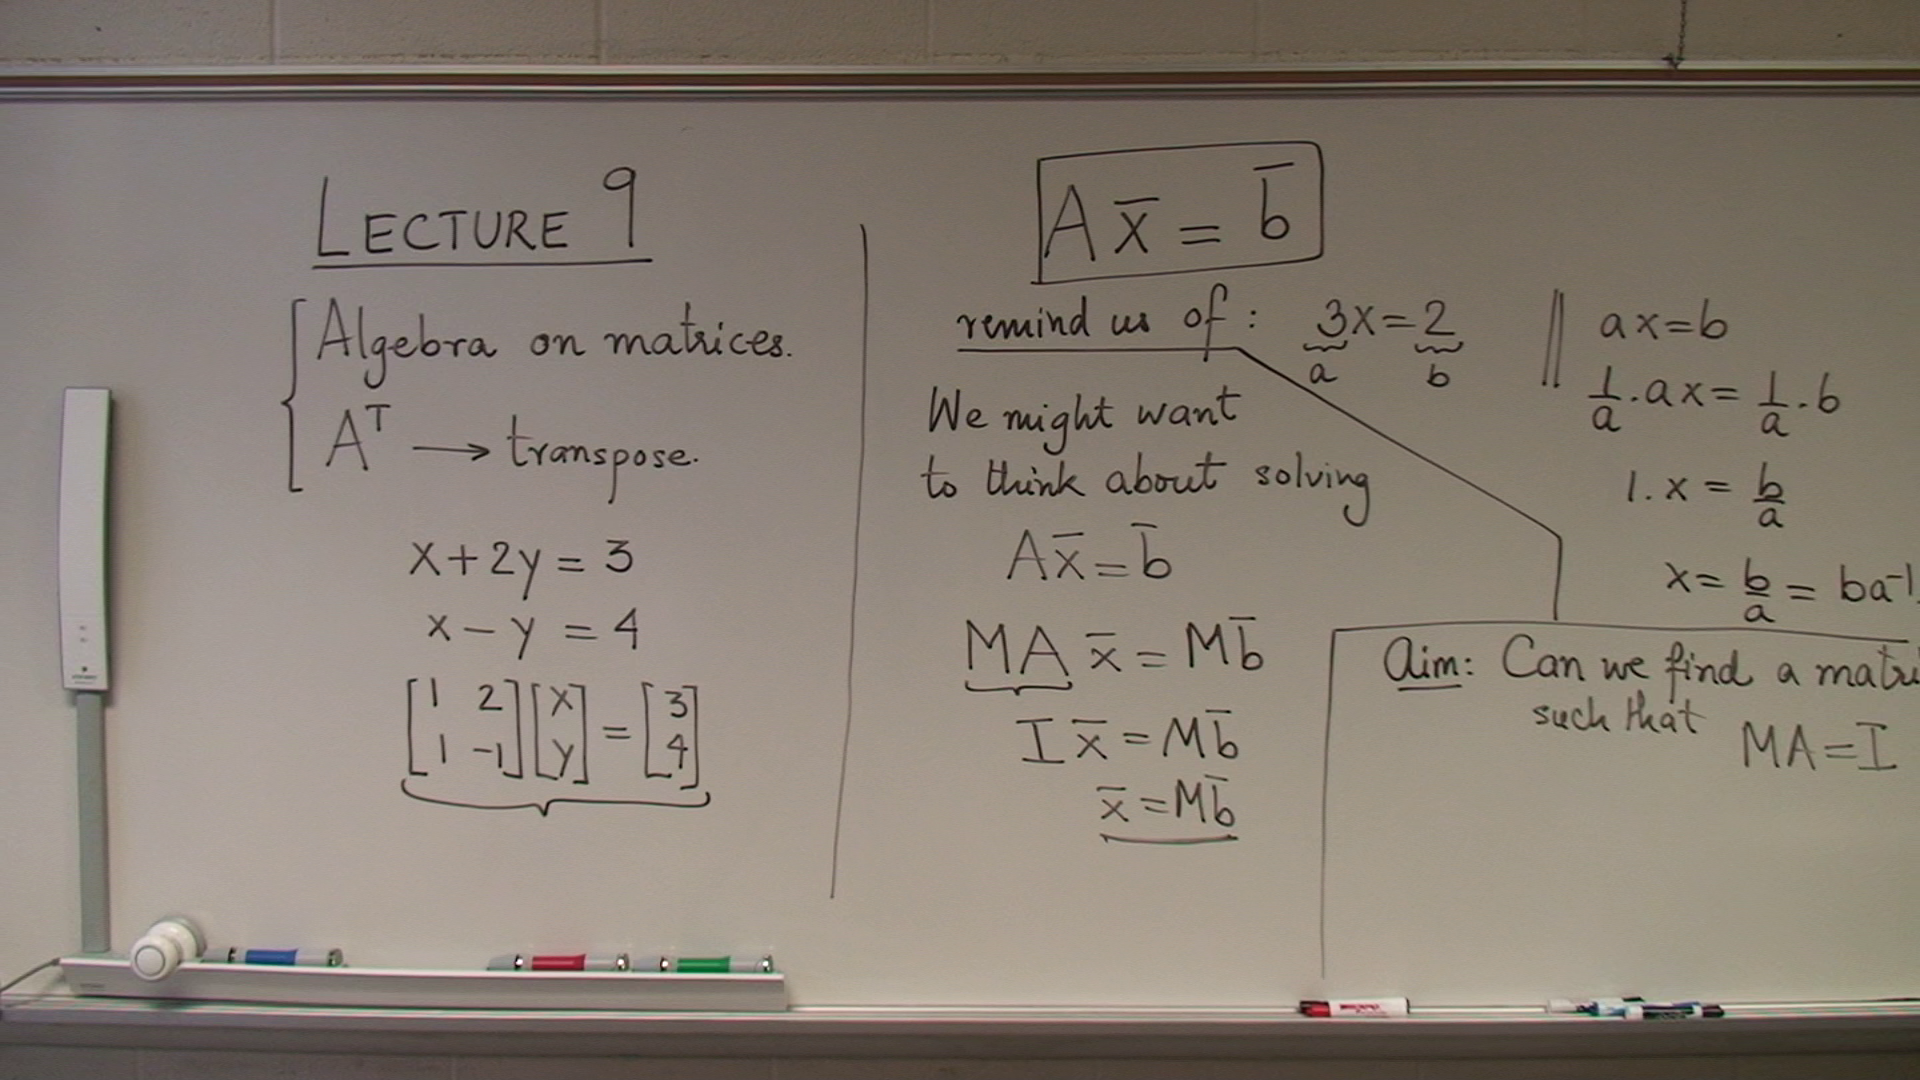 LECTURE 9
Algebra on matrices.
Aᵀ → transpose.
x+2y = 3
x – y = 4
[1 2; 1 -1] [x; y] = [3; 4]
Ax̄ = b̄
remind us of :
3x=2
a b
We might want
to think about solving
Ax̄=b̄
MA x̄ = Mb̄
I x̄ = Mb̄
x̄ = Mb̄
ax=b
1/a . ax = 1/a . b
1. x = b/a
x = b/a = ba⁻¹
Aim: Can we find a
such that
MA=I